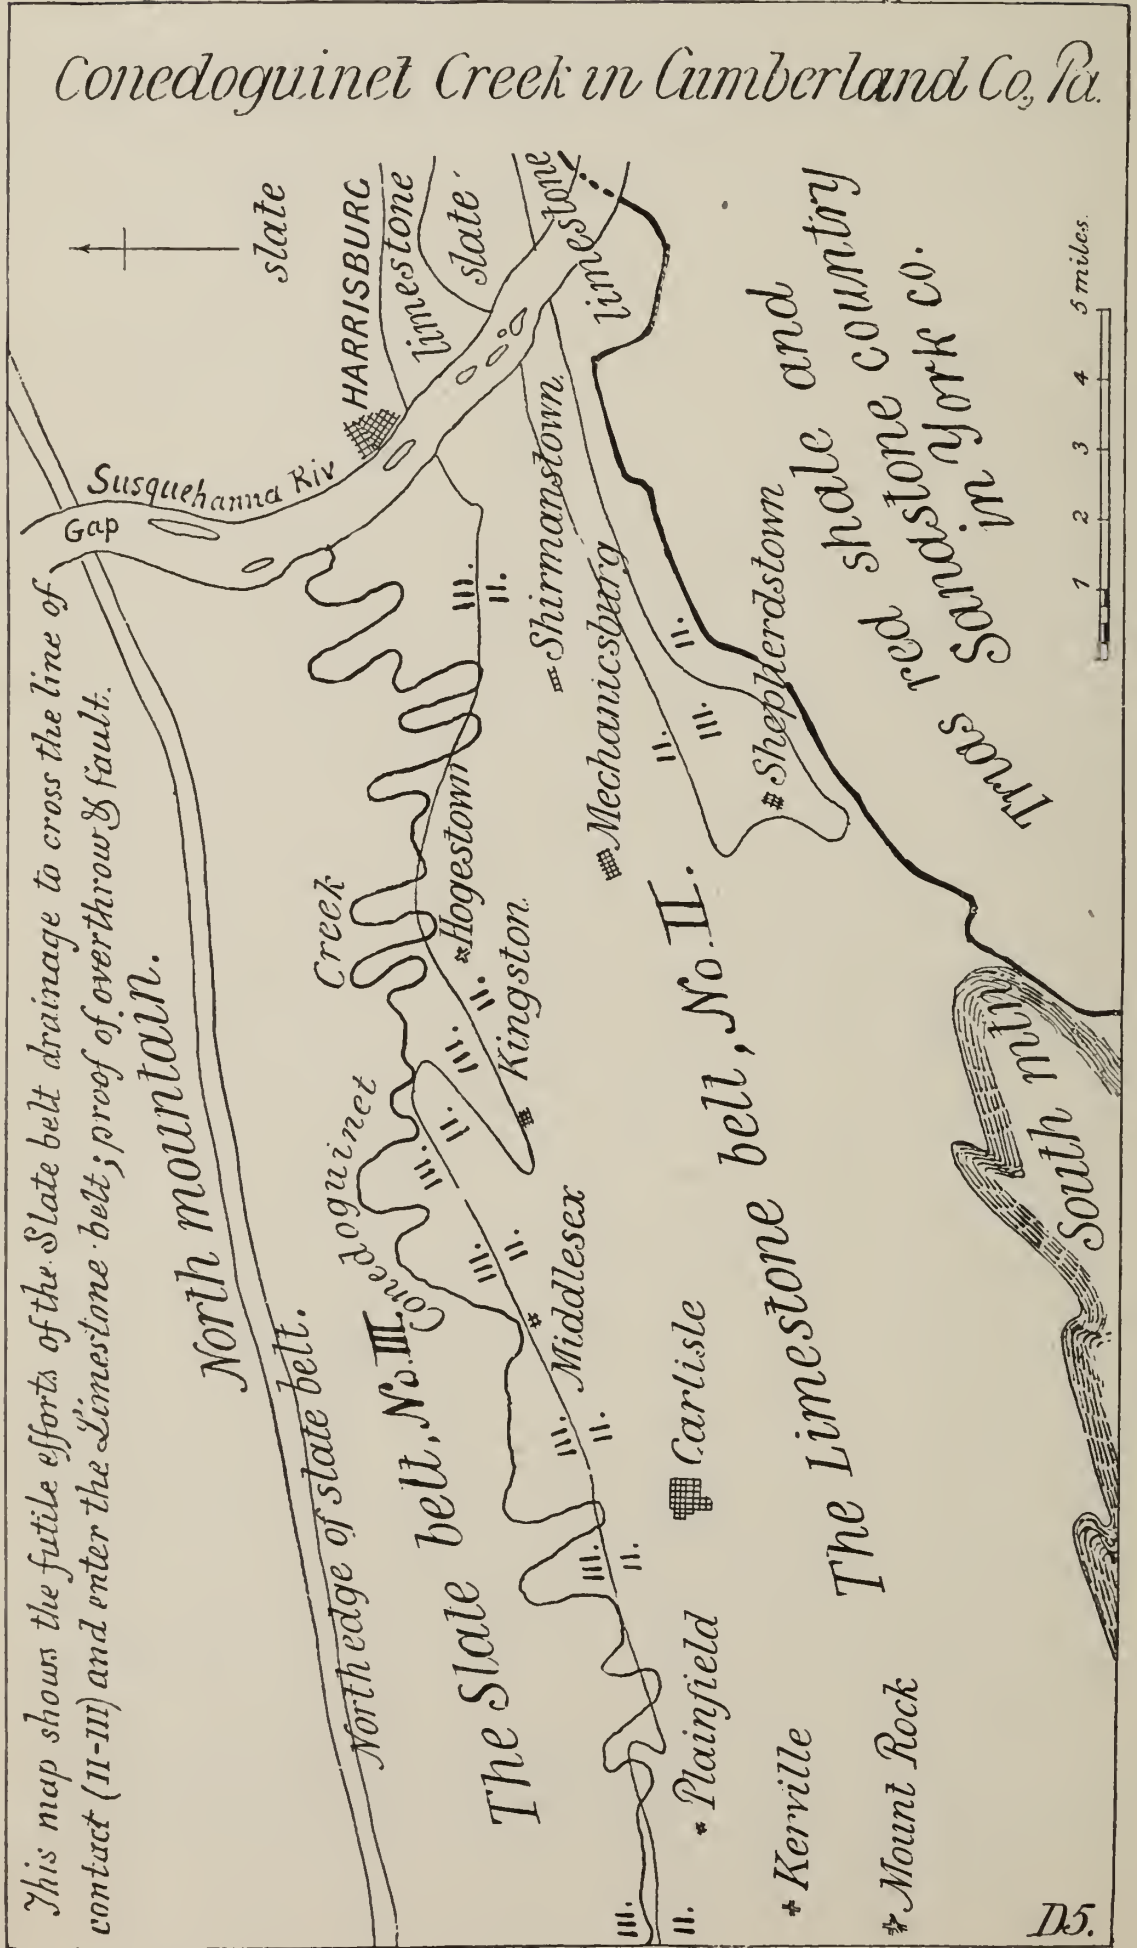 Conedoguinet Creek in Cumberland Co., Pa.
This map shows the futile efforts of the Slate belt drainage to cross the line of
contact (II-III) and enter the Limestone belt; proof of overthrow & fault.
North mountain.
North edge of slate belt.
The Slate belt, No. III.
Conedoguinet
Creek
Gap
Susquehanna Riv
HARRISBURG
slate
limestone
slate
limestone
limestone
III.
II.
III.
II.
III.
II.
III.
II.
III.
II.
III.
II.
III.
II.
II.
III.
II.
Hogestown
Kingston.
Middlesex
Shirmanstown.
Mechanicsburg
Shepherdstown
Carlisle
Plainfield
Kerville
Mount Rock
The Limestone belt, No. II.
South mtn
Trias red shale and
Sandstone country
in York co.
1 2 3 4 5 miles.
D5.